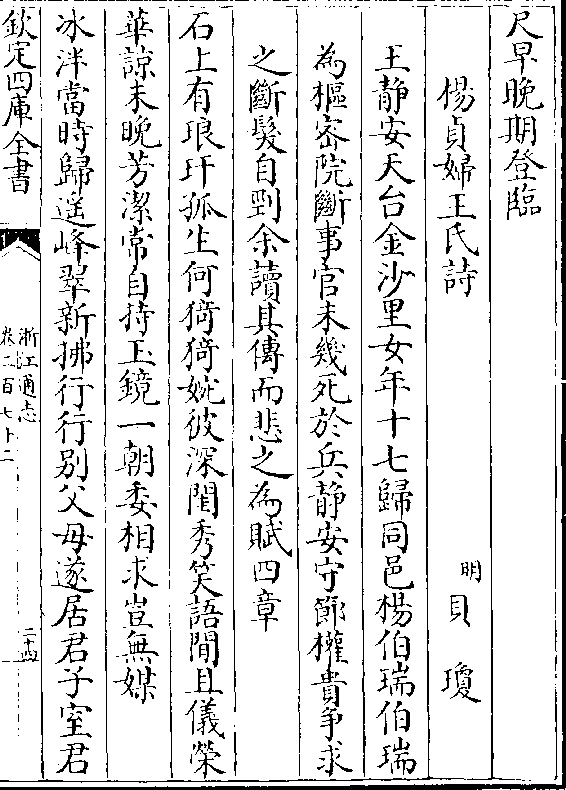 尺早晚期登臨
楊貞婦王氏詩 明 貝瓊
王靜安天台金沙里女年十七歸同邑楊伯瑞伯瑞
為樞密院斷事官未幾死於兵靜安守節權貴爭求
之斷髮自剄余讀其傳而悲之為賦四章
石上有琅玕孤生何猗猗婉彼深閨秀笑語閒且儀榮
華諒未晚芳潔常自持玉鏡一朝委相求豈無媒
冰泮當時歸遥峰翠新拂行行别父母遂居君子室君
欽定四庫全書
浙江通志
卷二百七十二
二十四